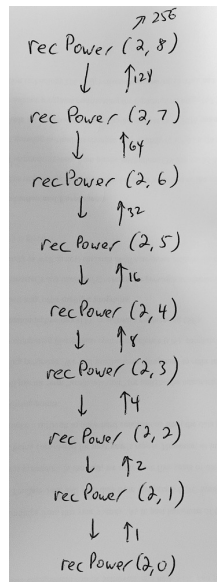 ↗ 256
rec Power (2, 8)
↓ ↑128
rec Power (2, 7)
↓ ↑64
rec Power (2, 6)
↓ ↑32
rec Power (2, 5)
↓ ↑16
rec Power (2, 4)
↓ ↑8
rec Power (2, 3)
↓ ↑4
rec Power (2, 2)
↓ ↑2
rec Power (2, 1)
↓ ↑1
rec Power (2, 0)